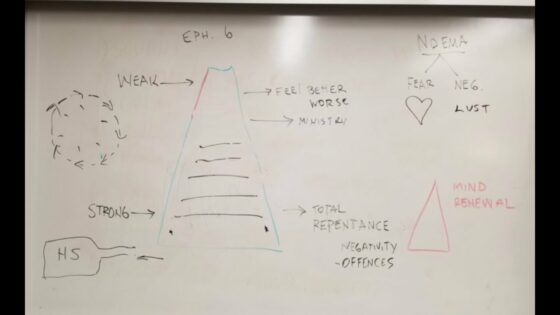 EPH. 6
NOEMA
WEAK
FEEL BETTER
WORSE
MINISTRY
FEAR
NEG.
LUST
STRONG
TOTAL
REPENTANCE
NEGATIVITY
-OFFENCES
MIND
RENEWAL
HS